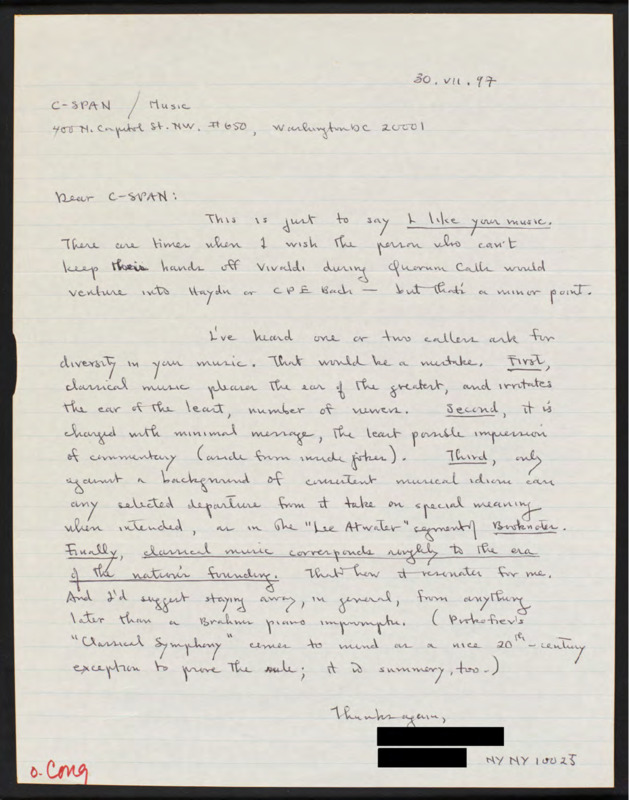 30. VII. 97
C-SPAN / Music
400 N. Capitol St. NW. #650, Washington DC 20001
Dear C-SPAN:
This is just to say I like your music.
There are times when I wish the person who can't
keep their hands off Vivaldi during Quorum Calls would
venture into Haydn or CPE Bach — but that's a minor point.
I've heard one or two callers ask for
diversity in your music. That would be a mistake. First,
classical music pleases the ear of the greatest, and irritates
the ear of the least, number of viewers. Second, it is
charged with minimal message, the least possible impression
of commentary (aside from inside jokes). Third, only
against a background of consistent musical idiom can
any selected departure from it take on special meaning
when intended, as in the "Lee Atwater" segment of Booknotes.
Finally, classical music corresponds roughly to the era
of the nation's founding. That's how it resonates for me.
And I'd suggest staying away, in general, from anything
later than a Brahms piano impromptu. (Prokofiev's
"Classical Symphony" comes to mind as a nice 20th-century
exception to prove the rule; it is summery, too.)
Thanks again,
NY NY 10025
o. Cong